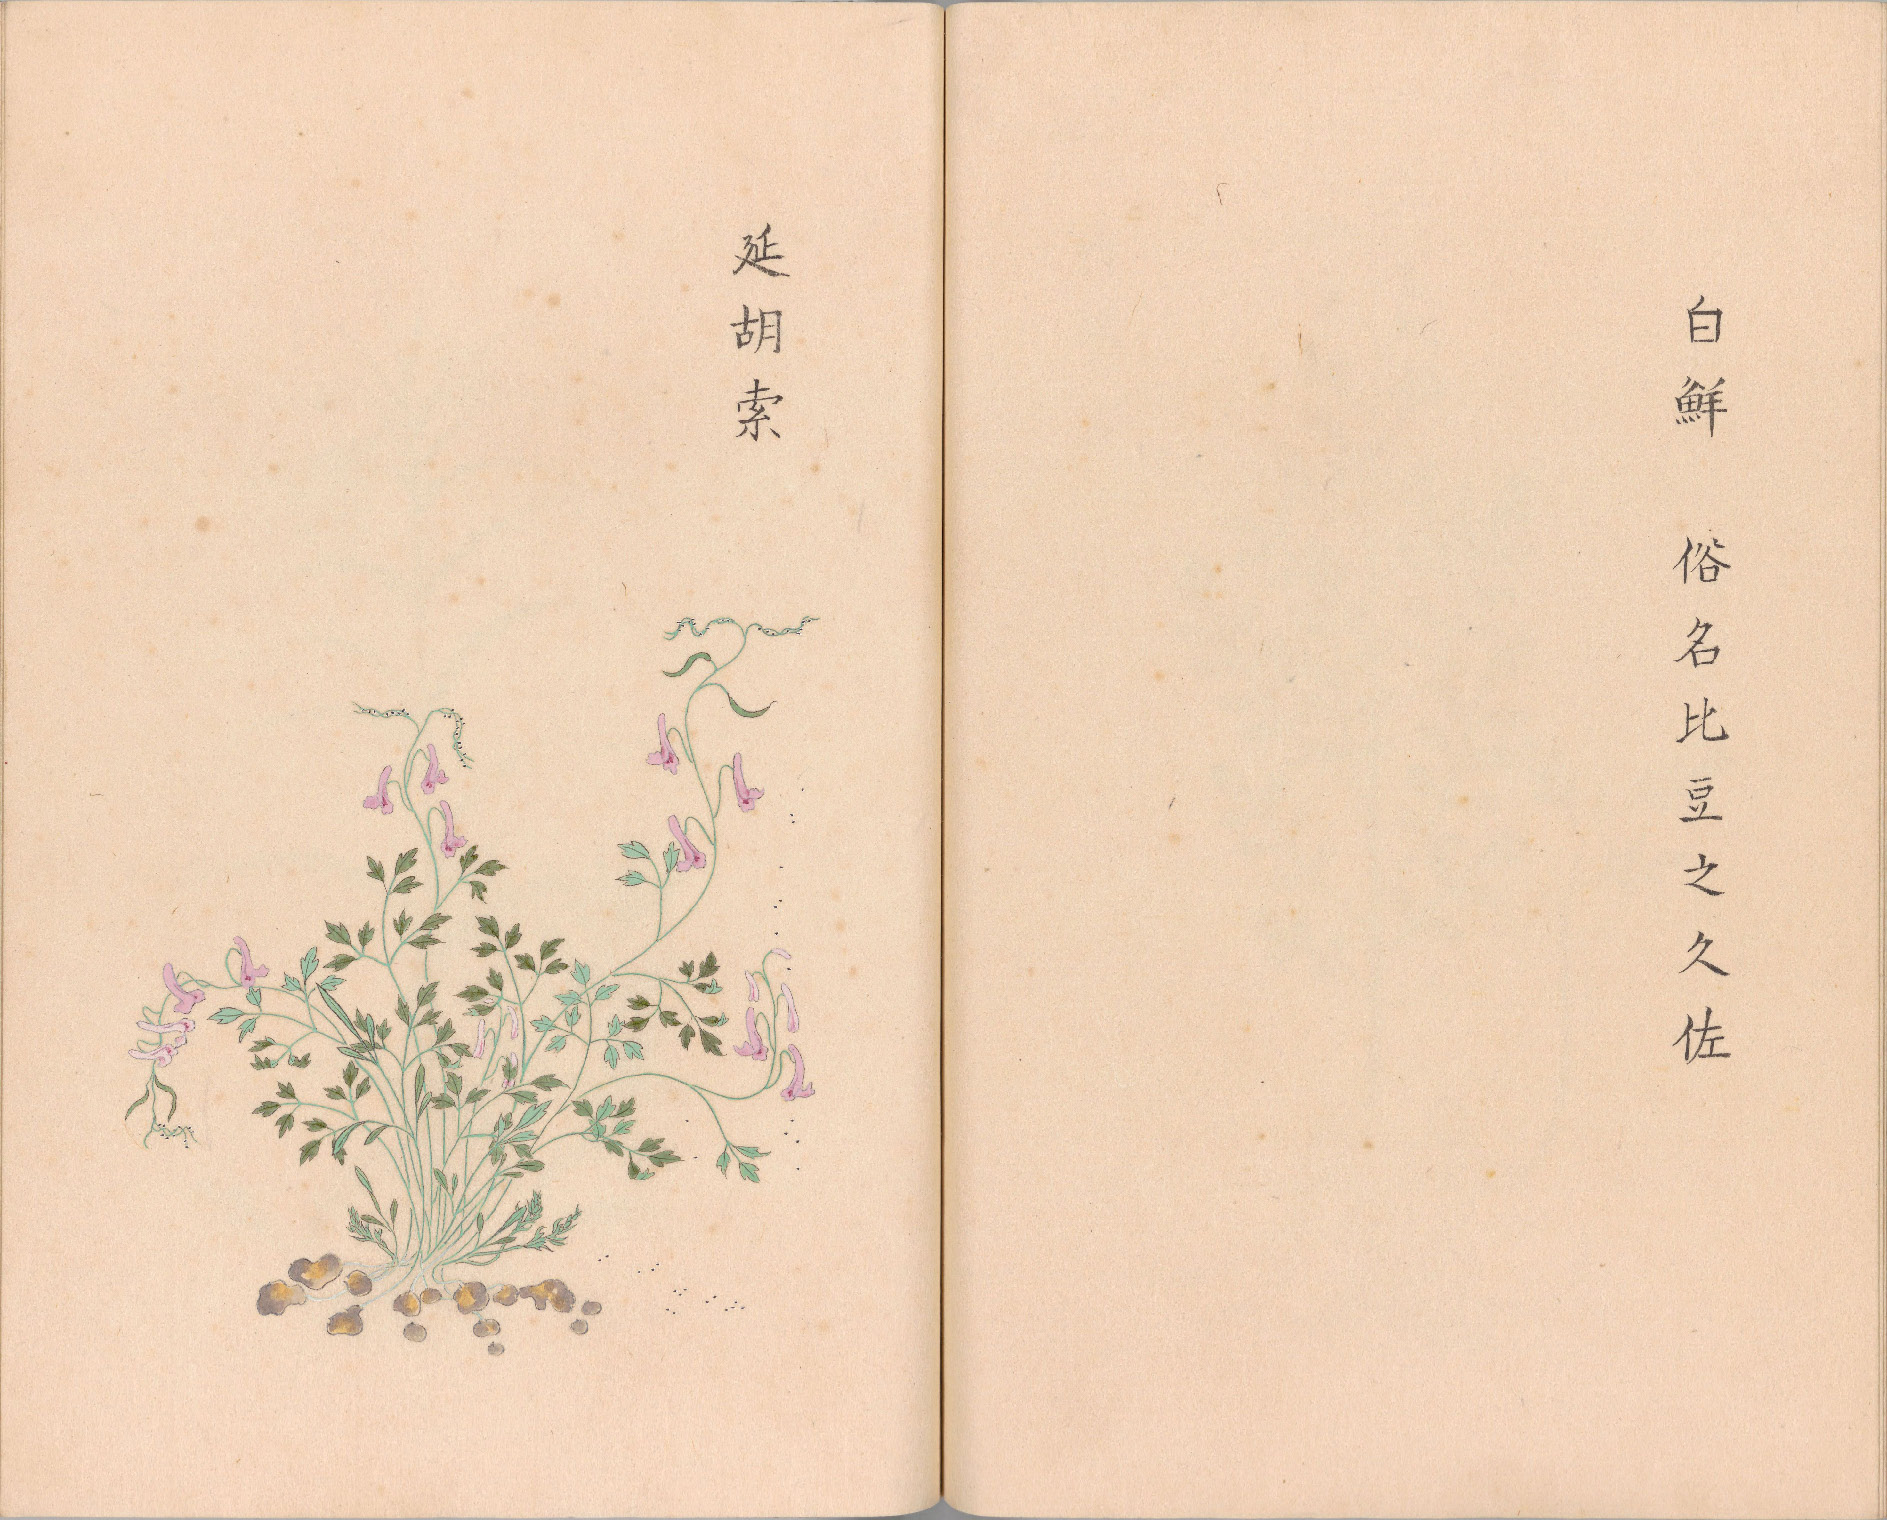 白鮮　俗名比豆之久佐
延胡索